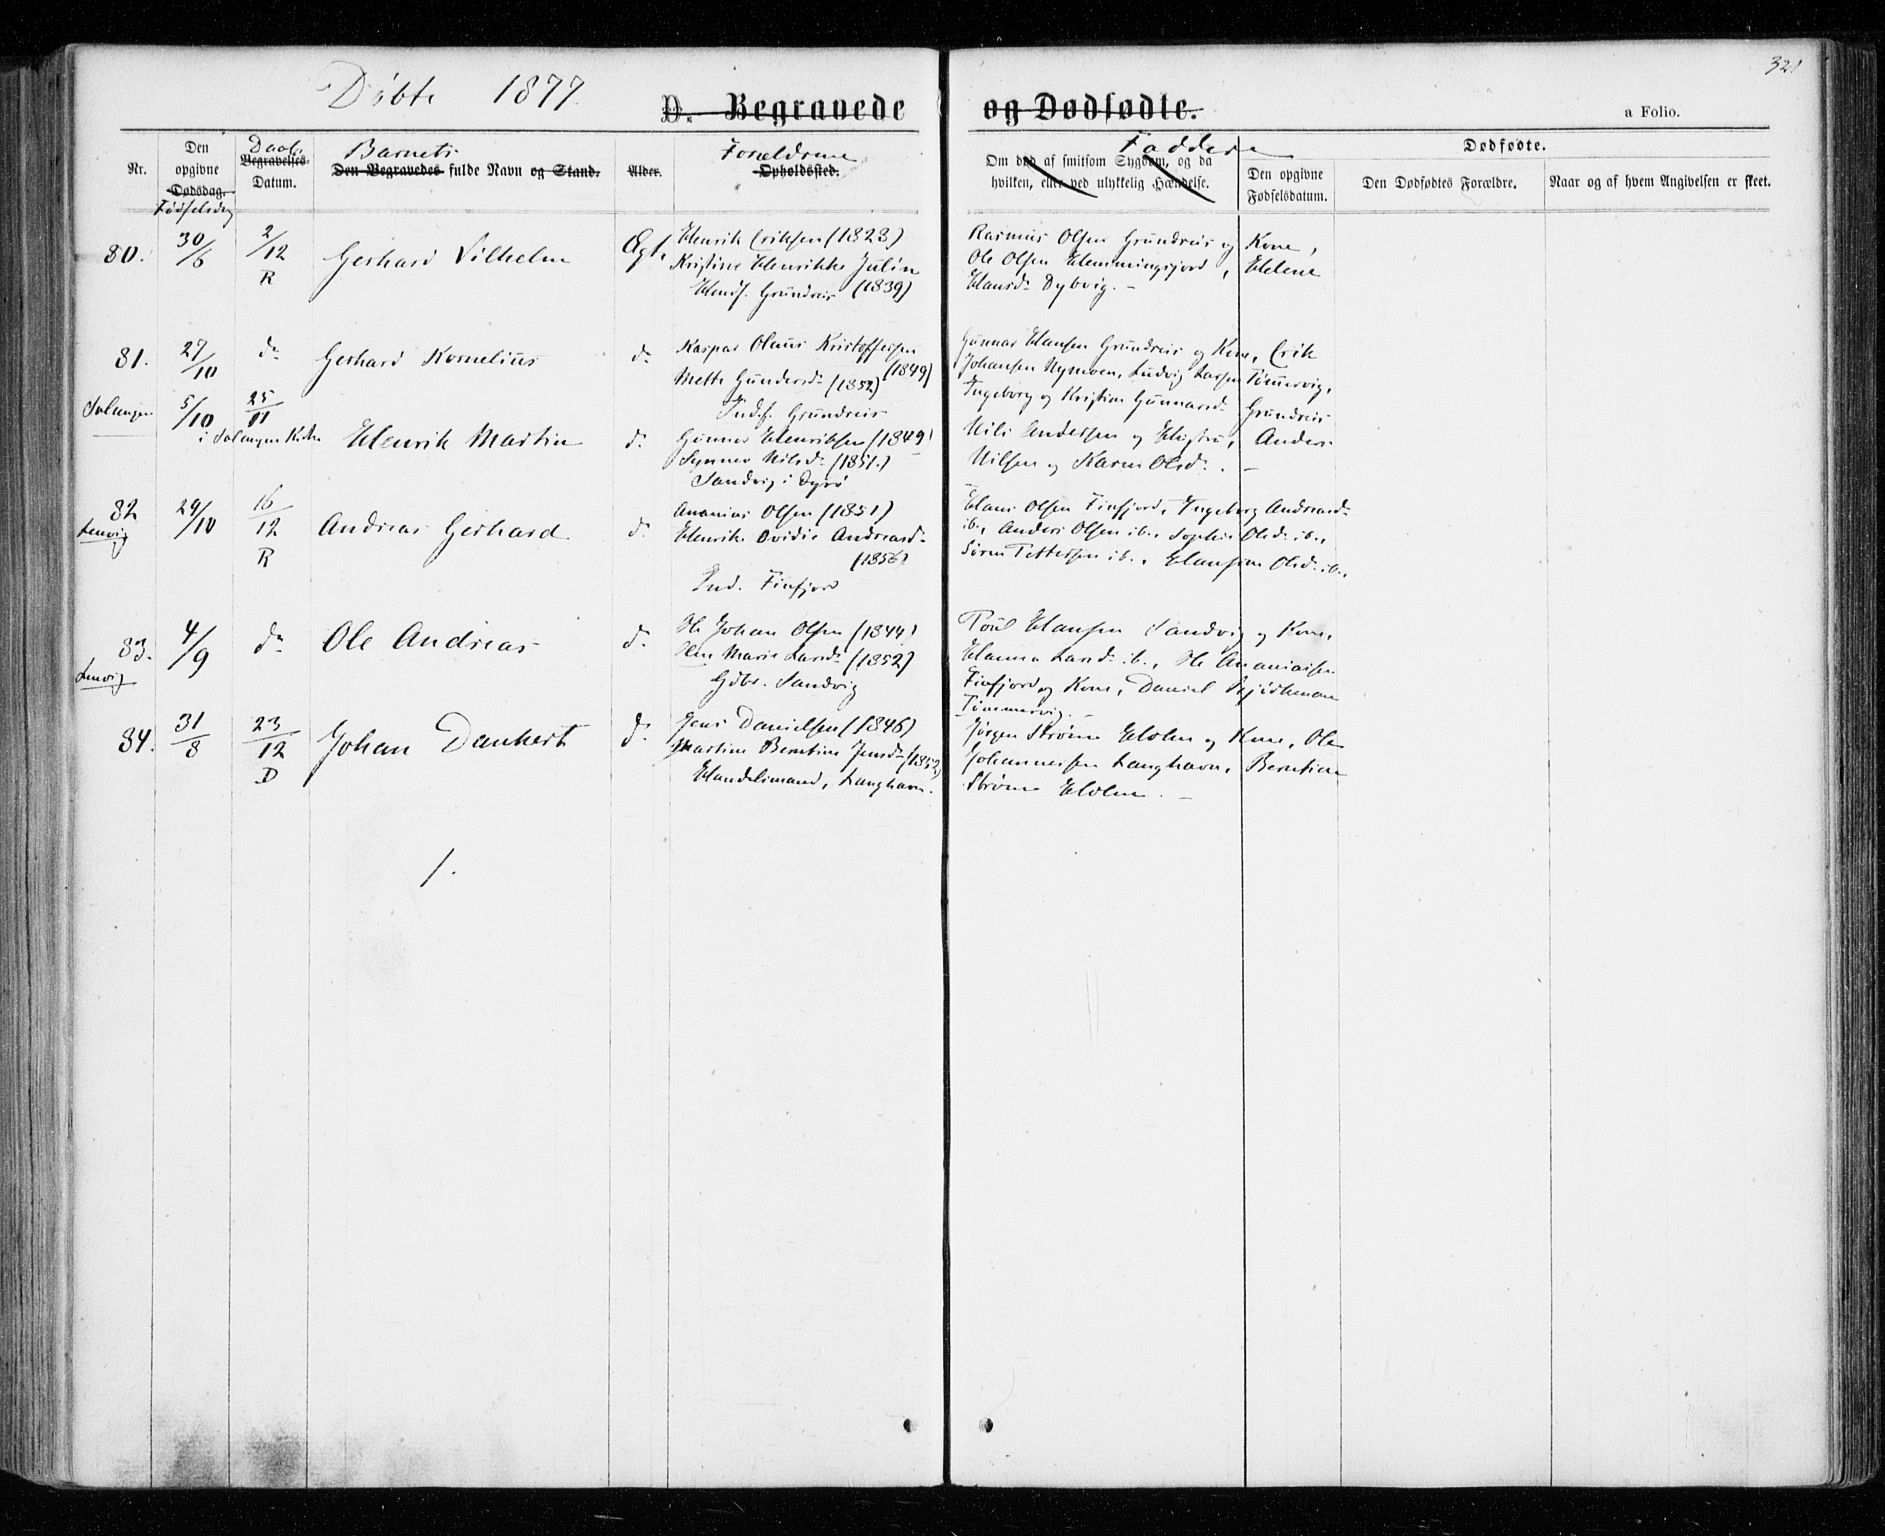 321
Døbte 1877.
D. Begravede og Dødfødte.
a Folio.
Nr.
Den opgivne Dødsdag. Fødselsdag
Daabs Begravelses-Datum.
Barnets
Den Begravedes fulde Navn og Stand.
Alder.
Forældrene
Opholdssted.
Faddere
Om død af smitsom Sygdom, og da
hvilken, eller ved ulykkelig Hændelse.
Dødfødte.
Den opgivne Fødselsdatum.
Den Dødfødtes Forældre.
Naar og af hvem Angivelsen er skeet.
80. 30/6 2/12 R Gerhard Vilhelm Ægt.
Henrik Eriksen (1823)
Kristine Henrikke Julin
(1839)
Grundreis
Rasmus Olsen Grundreis og Kone,
Ole Olsen Hemmingsjord, Helene
Hansd. Dybvig. -
81. 27/10 do Gerhard Kornelius do
Kaspar Olaus Kristoffersen
(1849)
Mette Gundersd. (1852)
Ind.f. Grundreis
Gunnar Hansen Grundreis og Kone, Erik
Johansen Nymoen, Ludvig Larsen Tömmervig,
Ingeborg og Kristine Gunnarsd. Grundreis
Salangen 5/10 25/11 i Salangen Kirke Henrik Martin do
Gunner Henriksen (1849)
Synnev Nilsd. (1851.)
Sandvig i Dyrö
Nils Andersen og Hustru, Anders
Nilsen og Karen Olsd. . -
82 Lenvig 29/10 16/12 R Andreas Gerhard do
Ananias Olsen (1851)
Henrike Ovidie Andreasd.
(1856)
Ind. Finfjord
Hans Olsen Finfjord, Ingeborg Andreasd.
ib., Anders Olsen ib., Sophie Olsd. ib.,
Sören Pettersen ib., Hansine Olsd. ib.,
83. Lenvig 4/9 do Ole Andreas do
Ole Johan Olsen (1844)
Marie Larsd. (1852)
Gdbr. Sandvig
Poul Hansen Sandvig og Kone,
Hanna Larsd. ib., Ole Ananiassen
Finfjord og Kone, Daniel
Tömmervig. -
84. 31/8 23/12 D Johan Dankert do
Jens Danielsen (1846)
Martine Berntine Jensd. (1852)
Handelsmand, Langhavn.
Jørgen Strøm Holm og Kone, Ole
Johannessen Langhavn, Berntine
Strøm Holm. -
1.